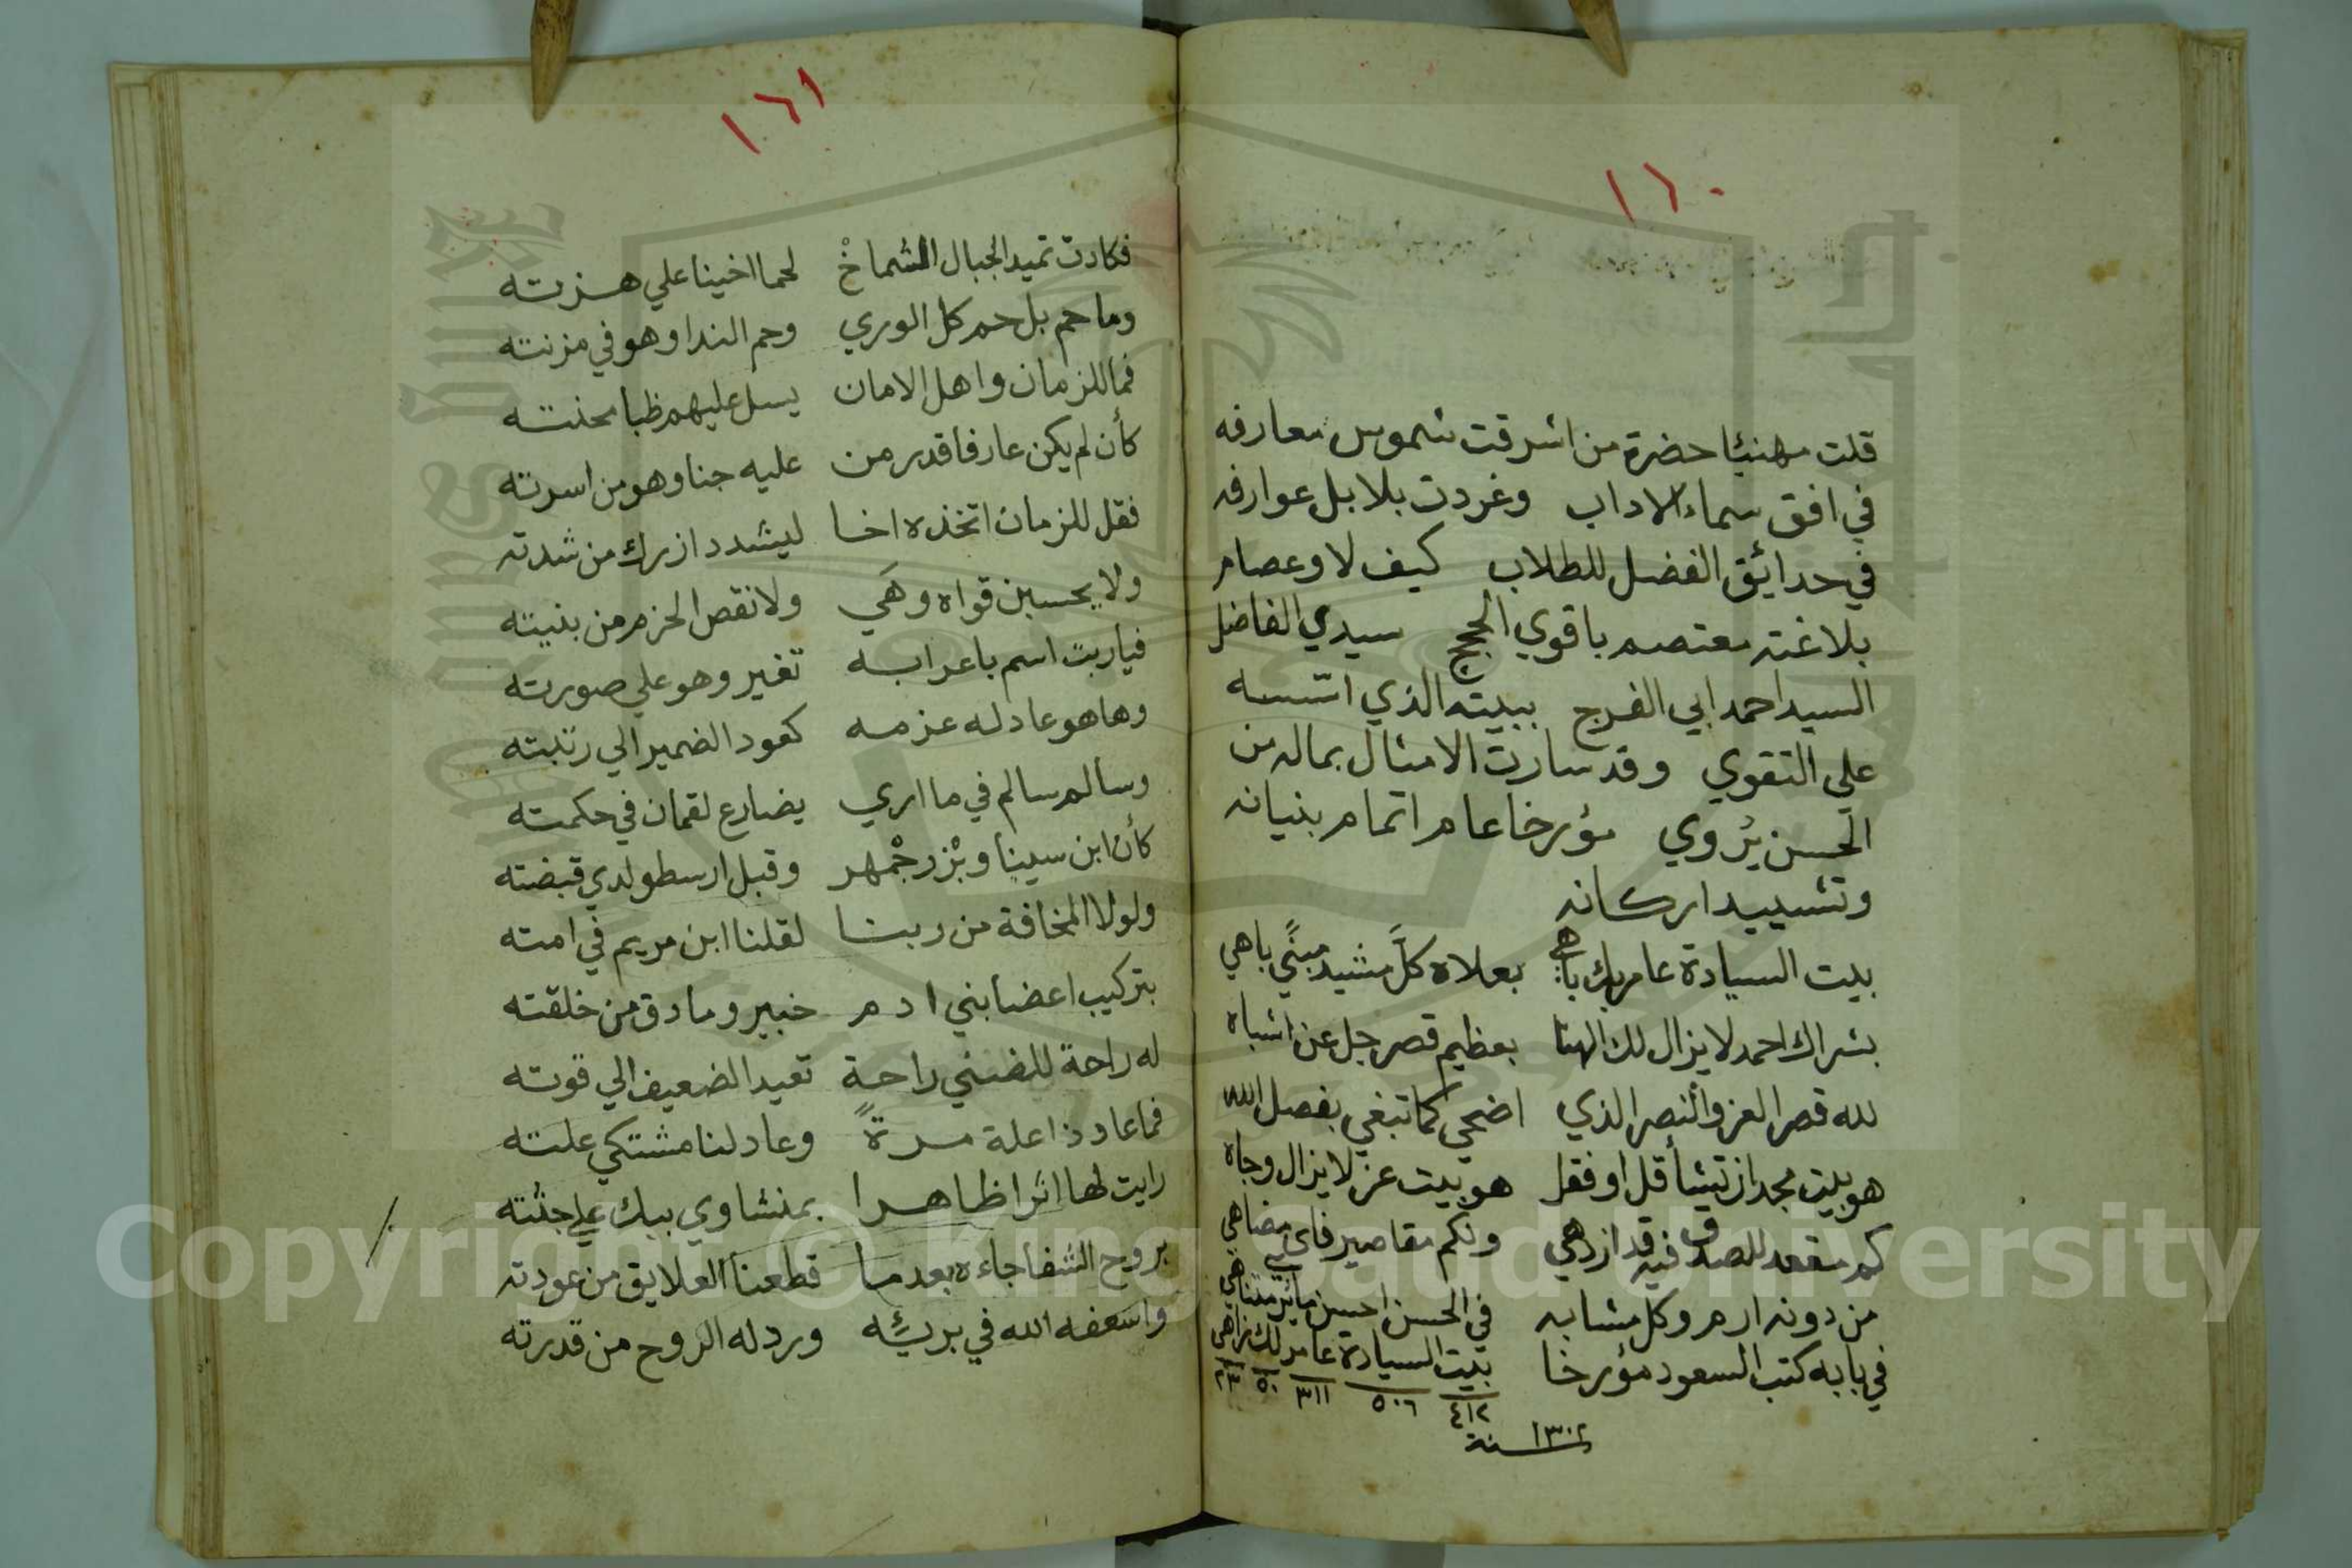 ١٦٠
قلت مهنيئا حضرة من اشرقت شموس معارفه
في افق سماء الاداب وغردت بلابل عوارفه
في حدائق الفضل للطلاب كيف لا وعصام
بلاغته معتصم باقوي الحجج سيدي الفاضل
السيد احمد ابي الفرج ببيته الذي اسّسه
علي التقوي وقد سارت الامثال بماله من
الحسن يُروي مؤرخا عام اتمام بنيانه
وتشييد اركانه
بيت السيادة عامر بك باهي بعلاه كلَّ مشيد مبنًي باهي
بشراك احمد لا يزال لك الهنا بعظيم قصر جل عن اشباه
لله قصر العز والنصر الذي اضحي كما تبغي بفضل الله
هو بيت مجد ان تشأ قل او فقل هو بيت عز لا يزال وجاه
كم مقعد للصدق فيه قد ازدهي ولكم مقاصير فاي مضاهي
من دونه ارم وكل مشابه في الحسن احسن مآثر متناهي
في بابه كتب السعود مؤرخا بيت السيادة عامر لك زاهي
٤١٢ ٥٠٦ ٣١١ ٥٠ ٢٣
سنة ١٣٠٢
١٦١
فكادت تميد الجبال الشماخْ لحما اخينا علي هزته
وما حم بل حم كل الوري وحم الندا وهو في مزنته
فما للزمان واهل الامان يسل عليهم ظبا محنته
كأن لم يكن عارفا قدر من عليه جنا وهو من اسرته
فقل للزمان اتخذه اخا ليشدد ازرك من شدته
ولا يحسبن قواه وهَي ولا نقص الحزم من بنيته
فيا ربت اسم باعرابه تغير وهو علي صورته
وها هو عاد له عزمه كعود الضمير الي رتبته
وسالم سالم في ما اري يضارع لقمان في حكمته
كأن ابن سينا وبُزرجْمهر وقبل ارسطو لدي قبضته
ولولا المخافة من ربنا لقلنا ابن مريم في امته
بتركيب اعضا بني ادم خبير وما دق من خلقته
له راحة للضني راحة تعيد الضعيف الي قوته
فما عاد ذا علة مرةً وعاد لنا مشتكي علته
رايت لها اثرا ظاهرا بمنشاوي بيك علي جثته
بروح الشفا جاءه بعد ما قطعنا العلايق من عودته
واسعفه الله في برئِه ورد له الروح من قدرته
Copyright © King Saud University